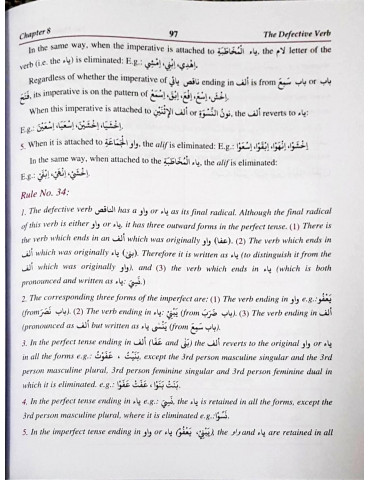 Chapter 8 97 The Defective Verb
In the same way, when the imperative is attached to يَاء الْمُخَاطَبَةِ, the لام letter of the
verb (i.e. the ياء) is eliminated: E.g.: اِهْدِي، اِبْنِي، اِمْشِي.
Regardless of whether the imperative of ناقص يائي ending in ألف is from باب سَمِعَ or باب
فَتَحَ, its imperative is on the pattern of اِخْشَ، اِسْعَ،
When this imperative is attached to ألف الاِثْنَيْنِ or نُونُ النِّسْوَةِ, the ألف reverts to ياء:
E.g.: اِخْشَيَا، اِخْشَيْنَ، اِسْعَيَا، اِسْعَيْنَ.
5. When it is attached to واو الْجَمَاعَةِ, the alif is eliminated: E.g.: اِخْشَوْا،
In the same way, when attached to the ياء الْمُخَاطَبَةِ, the alif is eliminated:
E.g.: اِخْشَيْ،
Rule No. 34:
1. The defective verb الناقص has a واو or ياء as its final radical. Although the final radical
of this verb is either واو or ياء, it has three outward forms in the perfect tense. (1) There is
the verb which ends in an ألف which was originally واو (عفا). (2) The verb which ends in
ألف which was originally ياء (بنى). Therefore it is written as ياء (to distinguish it from the
ألف which was originally واو), and (3) the verb which ends in ياء (which is both
pronounced and written as ياء: نَسِيَ.)
2. The corresponding three forms of the imperfect are: (1) The verb ending in واو e.g.: يَعْفُو
(from باب نَصَرَ). (2) The verb ending in ياء: يَبْنِي (from باب ضَرَبَ). (3) The verb ending in ألف
(pronounced as ألف but written as ياء يَنْسَى (from باب سَمِعَ).
3. In the perfect tense ending in ألف (عَفَا and بَنَى) the ألف reverts to the original واو or ياء
in all the forms e.g.: عَفَوْتُ ، بَنَيْتُ, except the 3rd person masculine singular and the 3rd
person masculine plural, 3rd person feminine singular and 3rd person feminine dual in
which it is eliminated. e.g.: عَفَوْا، عَفَتْ، بَنَوْا، بَنَتْ.
4. In the perfect tense ending in ياء e.g.: نَسِيَ, the ياء is retained in all the forms, except the
3rd person masculine plural, where it is eliminated e.g.: نَسُوا.
5. In the imperfect tense ending in واو or ياء (يَعْفُو، يَبْنِي), the واو and ياء are retained in all